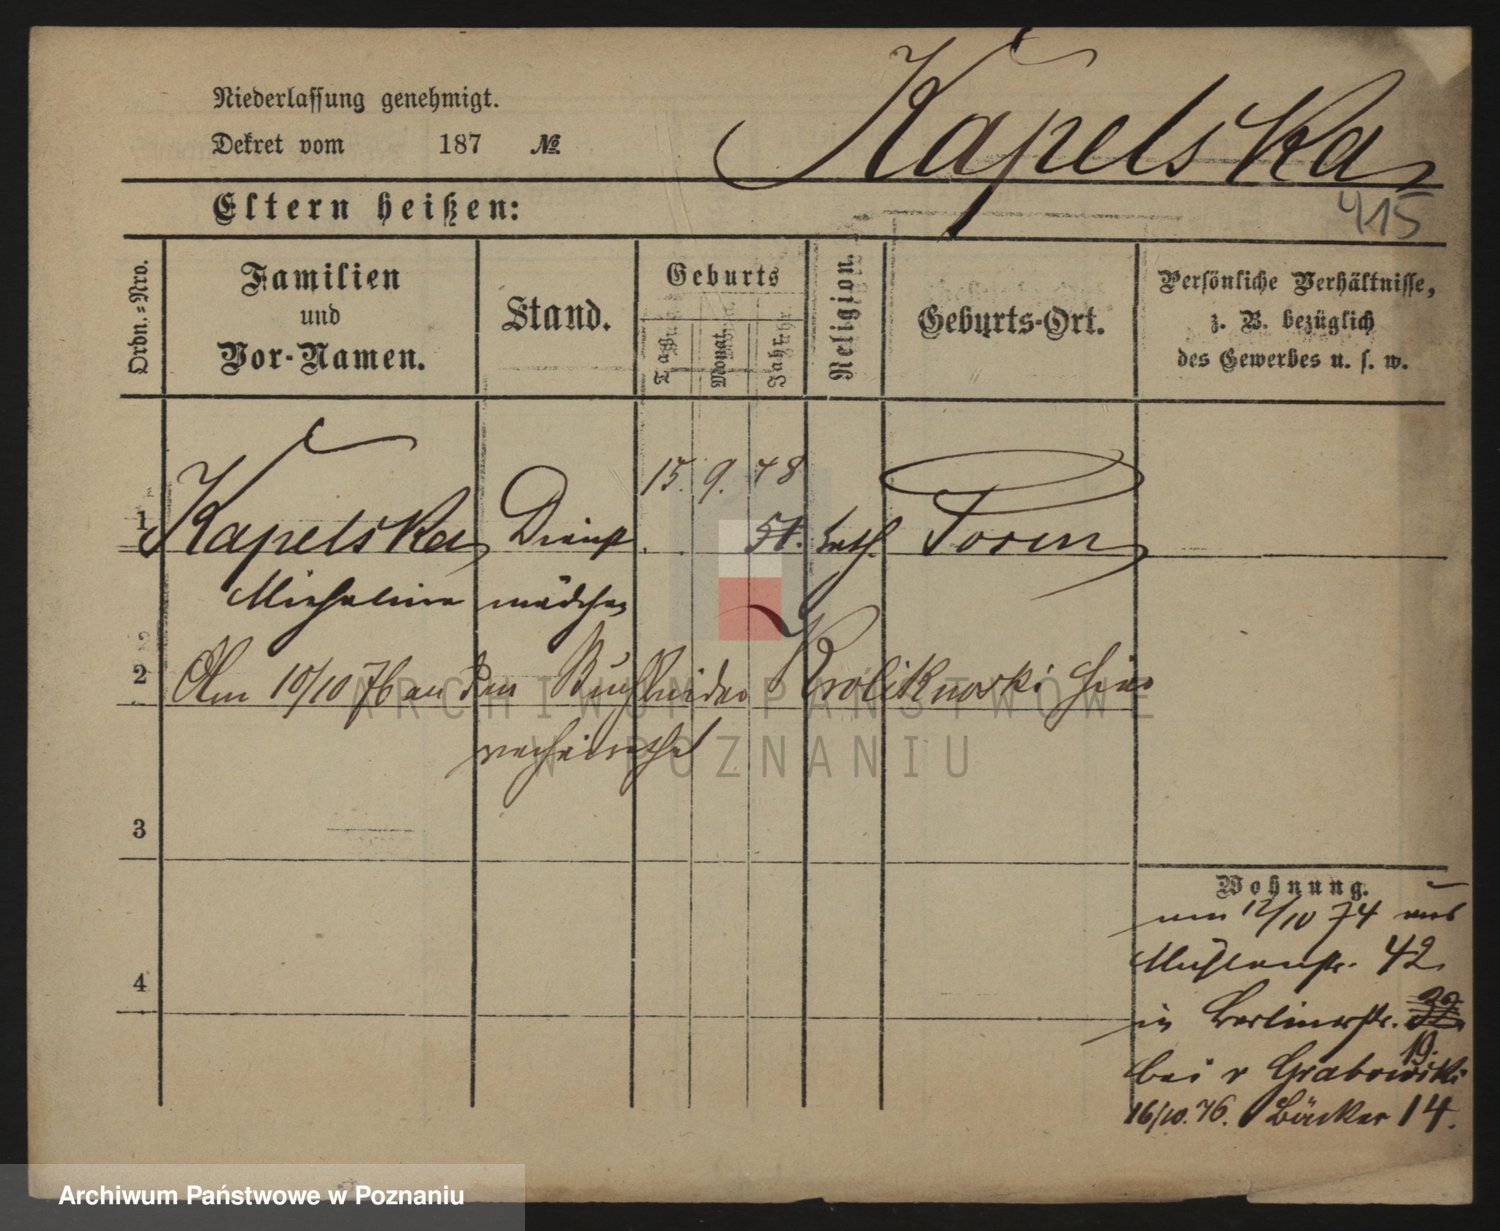 Kapelska
Niederlassung genehmigt.
Dekret vom 187 №
415
Eltern heißen:
Ordn.-Nro.
Familien
und
Vor-Namen.
Stand.
Geburts
Tag
Monat
Jahr
Religion.
Geburts-Ort.
Persönliche Verhältnisse,
z. B. bezüglich
des Gewerbes u. s. w.
15. 9. 48
1 Kapelska Dienst 51. kath.
Micheline mädchen
2 Am 10/10 76 an den Krolikowski hier
verheirathet
ARCHIWUM PAŃSTWOWE
W POZNANIU
3
4
Wohnung.
am 12/10 74 aus
Mühlenstr. 42
in Berlinerstr. 32
19.
bei v Grabowski
16/10. 76. Bäcker 14.
Archiwum Państwowe w Poznaniu